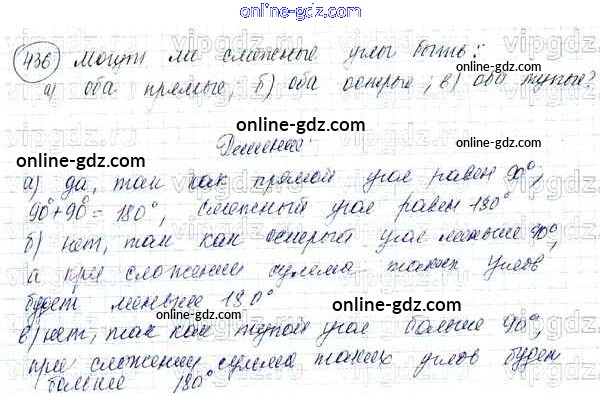 online-gdz.com
436) Могут ли смежные углы быть:
а) оба прямые; б) оба острые; в) оба тупые?
online-gdz.com
Решение:
online-gdz.com
а) да, так как прямой угол равен 90°,
90°+90°=180°, смежный угол равен 180°
online-gdz.com
б) нет, так как острый угол меньше 90°,
а при сложении сумма таких углов
будет меньше 180°
online-gdz.com
в) нет, так как тупой угол больше 90°,
при сложении сумма таких углов будет
больше 180°
online-gdz.com